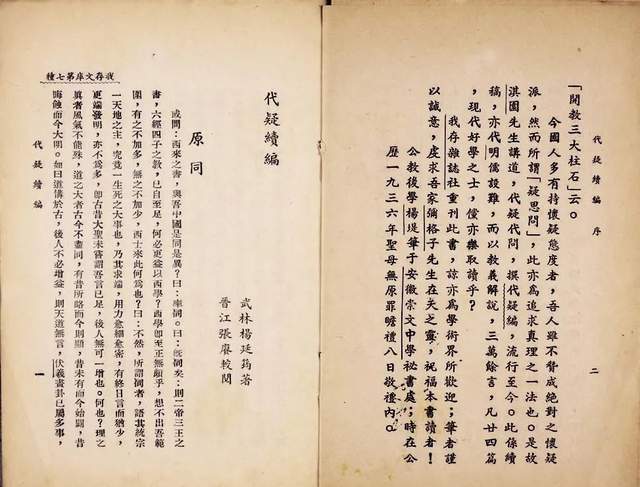 代疑續編 序
二
「開教三大柱石」云。
今國人多有持懷疑態度者，吾人雖不贊成絕對之懷疑
派，然而所謂「疑思問」，此亦爲追求眞理之一法也。是故
淇園先生講道，代疑代問，撰代疑編，流行至今。此係續
稿，亦代明儒設難，而以教義解說，三萬餘言，凡廿四篇
，現代好學之士，儻亦樂取讀乎？
我存雜誌社重刊此書，諒亦爲學術界所歡迎；筆者謹
以誠意，虔求吾家彌格子先生在天之靈，祝福本書讀者！
公教後學楊堤筆于安徽崇文中學祕書處；時在公
曆一九三六年聖母無原罪瞻禮八日敬禮內。
我存文庫第七種
代疑續編
一
代疑續編
武林楊廷筠著
晉江張賡較閱
原同
或問：西來之書，與吾中國是同是異？曰：率同。曰：旣同矣：則二帝三王之
書，六經四子之教，已自至足，何必更益以西學？西學卽至正無頗乎，想不出吾範
圍，有之不加多，無之不加少，西士來此何爲也？曰：不然，所謂同者，語其統宗
一天地之主，究竟一生死之大事也，乃其求端，用力愈細愈密，有終日言而猶少，
更端發明，亦不爲多，卽古昔大聖未嘗謂吾言已足，後人無可一增也。何也？理之
眞者風氣不能殊，道之大者古今不盡同，有昔所略而今則顯，昔未有而今始闢，昔
晦蝕而今大明。如曰道備於古，後人不必增益，則天道無言，伏羲畫卦已屬多事，